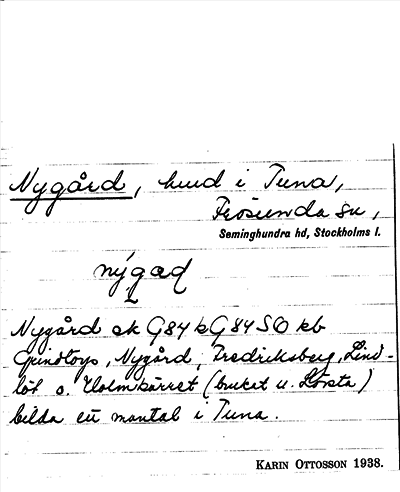 Nygård, hmd i Tuna,
Frösunda sn,
Seminghundra hd, Stockholms l.
nýgæd
Nygård ek G84 kG84 SO kb
Grindtorp, Nygård, Fredriksberg, Lind-
löt o. Holmkärret (brukat u. Lövsta)
bilda ett mantal i Tuna.
KARIN OTTOSSON 1938.